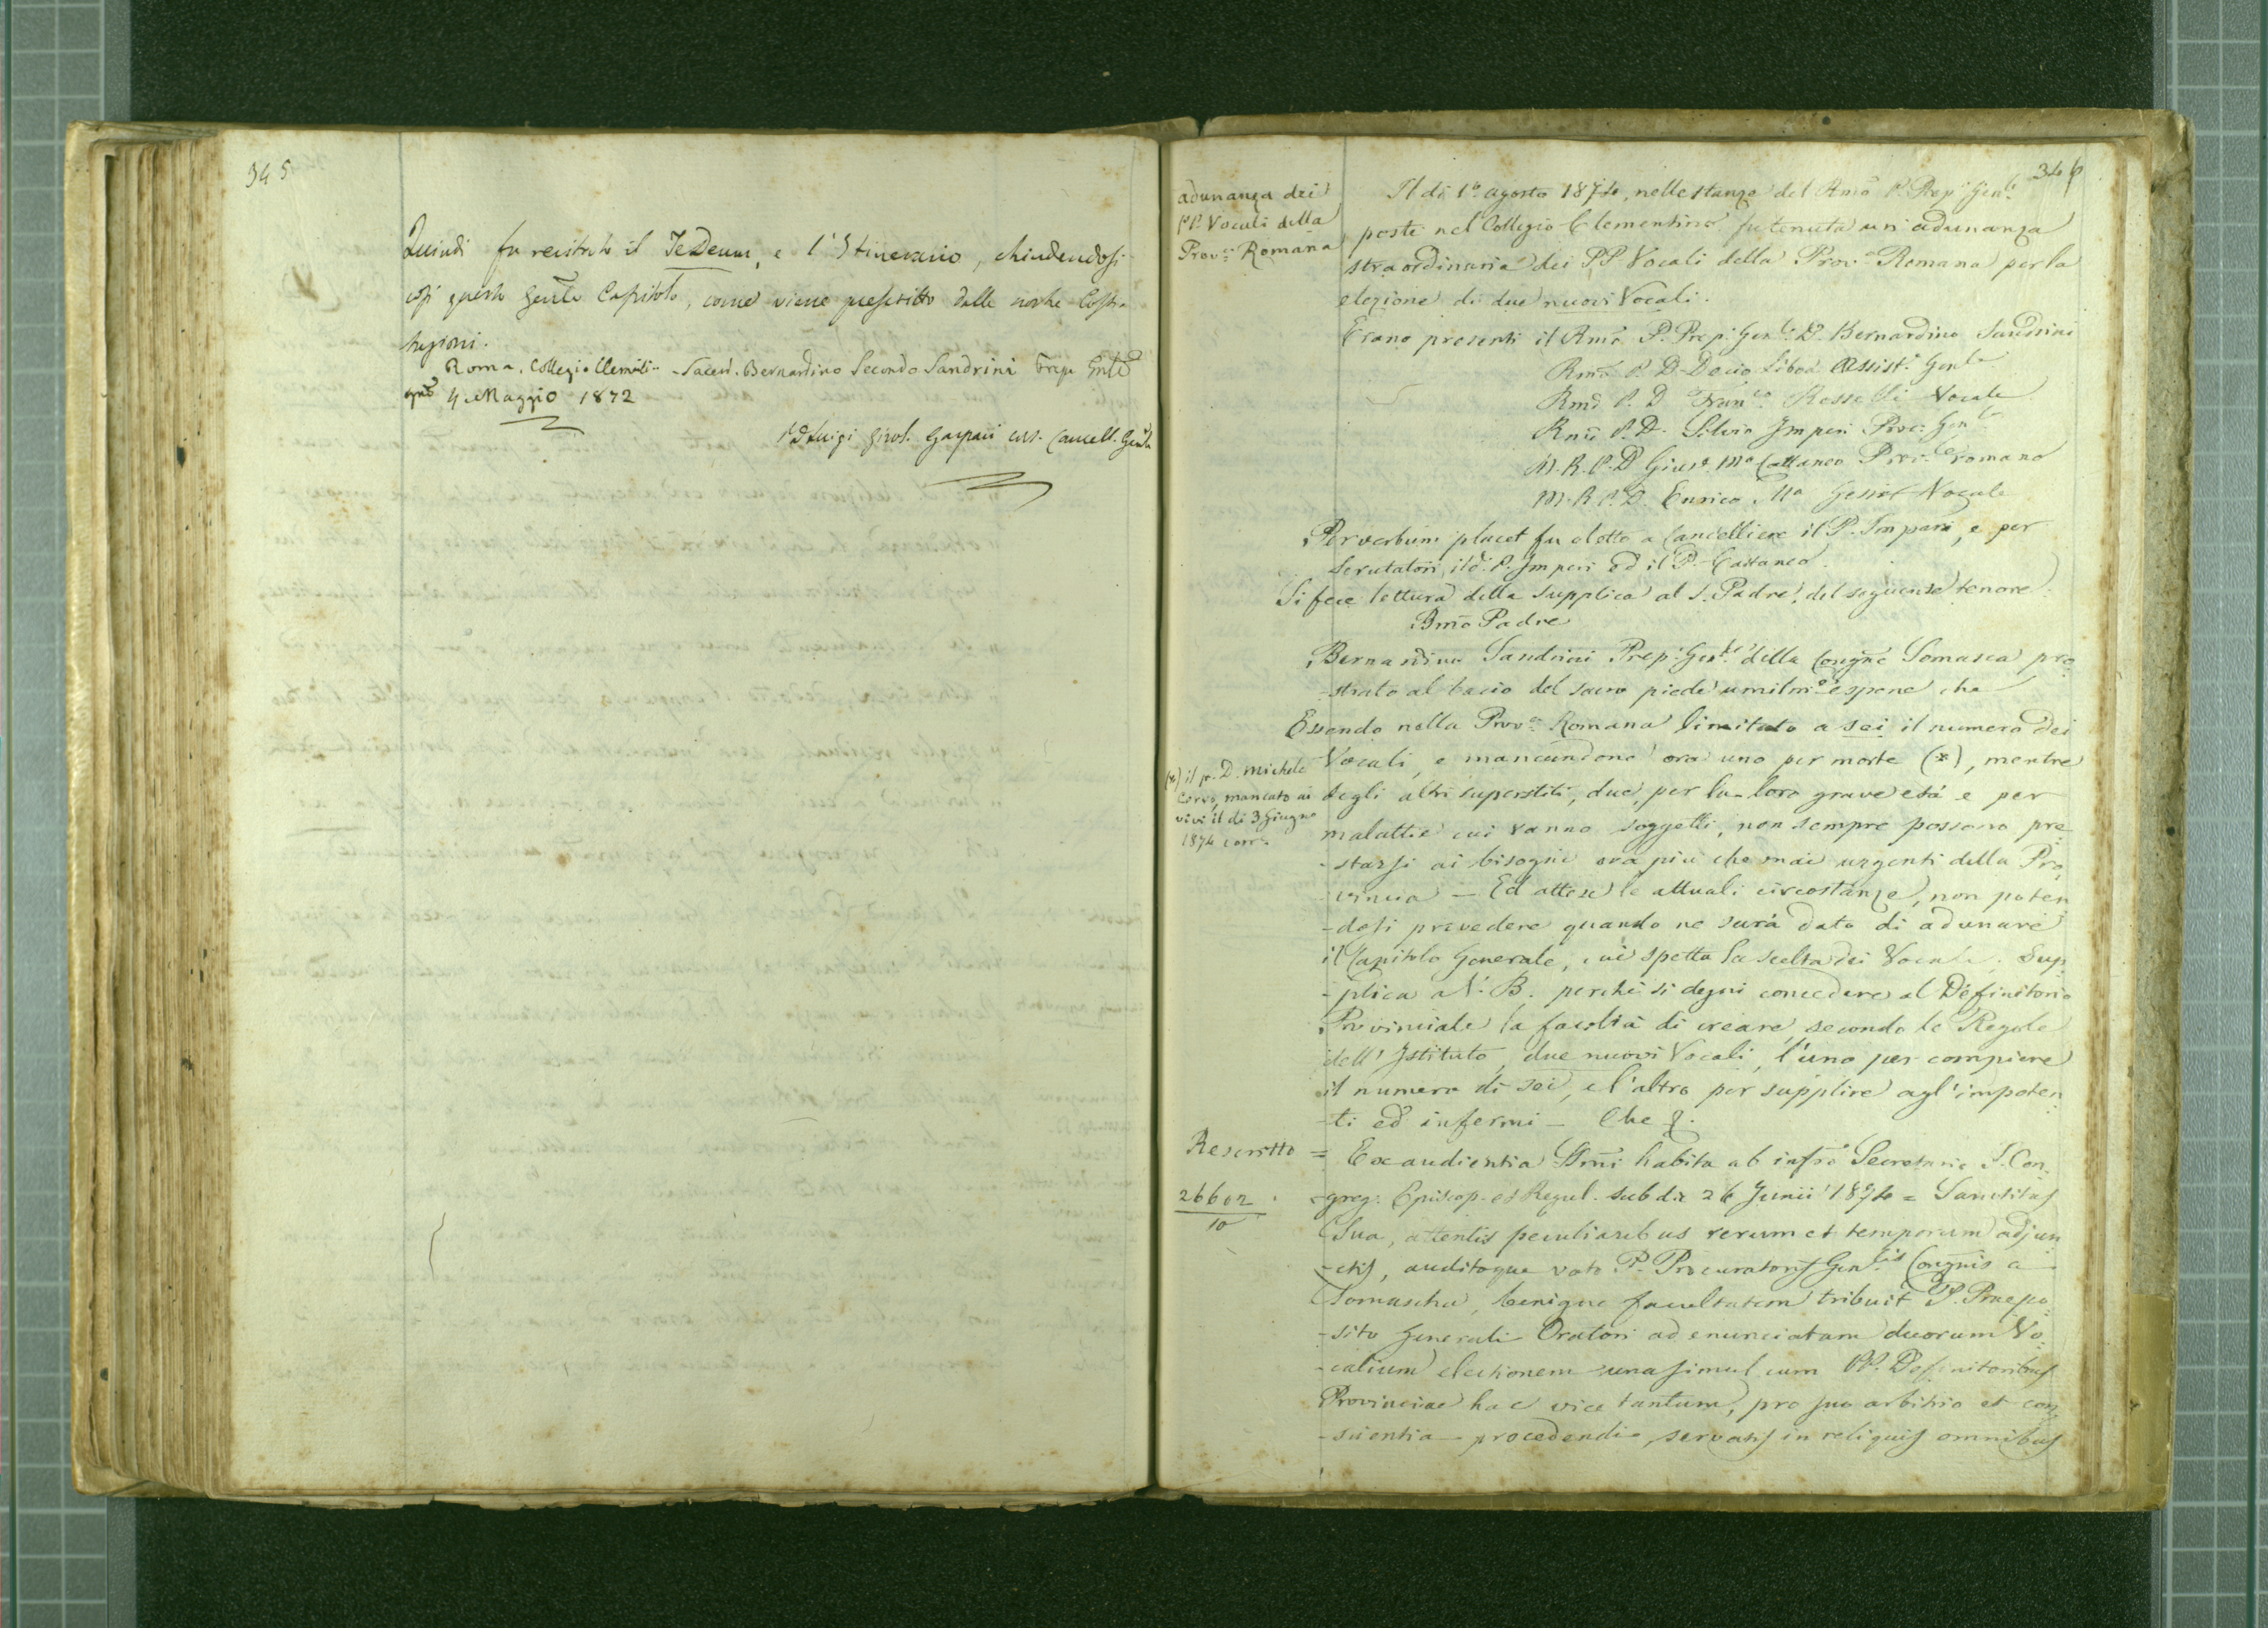 345
Quindi fu recitato il TeDeum, e l'Itinerario, chiudendosi
così questo Genle Capitolo, come viene prescritto dalle nostre Costi-
tuzioni.
Roma. Collegio Clementi- Sacerd. Bernardino Secondo Sandrini Prep. Genle
4 Maggio 1872
P. D. Luigi Girol. Gaspari Cancell. Genle
346
adunanza dei
PP. Vocali della
Prov.a Romana
Il dì 1º agosto 1874, nelle stanze del Rmo P. Prep. Gen.le
poste nel Collegio Clementino fu tenuta un'adunanza
straordinaria dei PP Vocali della Prov.a Romana per la
elezione di due nuovi Vocali.
Erano presenti il Rmo P. Prep. Gen.le D. Bernardino Sandrini
Rmo P. D. Decio Libois Assist.e Gen.le
Rmo P. D. Fran.co Rosselli Vocale
Rmo P. D. Silvio Imperi Proc. Gen.le
M. R. P. D. Gius.e Ma Cattaneo Prov.le romano
M. R. P. D. Enrico Ma Gessi Vocale
Per verbum placet fu eletto a Cancelliere il P. Imperi, e per
Scrutatori il d. P. Imperi ed il P. Cattaneo.
Si fece lettura della supplica al S. Padre, del seguente tenore:
Bmo Padre
Bernardino Sandrini Prep. Gen.le della Congne Somasca pro
-strato al bacio del sacro piede umilm.e espone che
Essendo nella Prov.a Romana limitato a sei il numero dei
Vocali, e mancandone ora uno per morte (*), mentre
(*) il p. D. Michele
Corvo, mancato ai
vivi il dì 3 Giugno
1874 corr.e
degli altri superstiti, due, per la loro grave età e per
malattie cui vanno soggetti, non sempre possono pre
-starsi ai bisogni ora più che mai urgenti della Pro
-vincia – Ed attese le attuali circostanze, non poten
-dosi prevedere quando ne sarà dato di adunare
il Capitolo Generale, cui spetta la scelta dei Vocali. Sup
-plica a V. B. perchè si degni concedere al Definitorio
Provinciale la facoltà di creare, secondo le Regole
dell'Istituto, due nuovi Vocali, l'uno per compiere
il numero di sei, e l'altro per supplire agl'impoten
-ti ed infermi – Che &.
Rescritto = Ex audientia SSmi habita ab infro Secretario S. Con-
26602
10
-greg. Episcop. et Regul. sub die 26 Junii 1874 = Sanctitas
Sua, attentis peculiaribus rerum et temporum adjun
-ctis, auditoque voto P. Procuratoris Gen.lis Congnis a
Somascha, benigne facultatem tribuit P. Praepo
-sito Generali Oratori ad enunciatam duorum Vo
-calium electionem una simul cum PP. Definitoribus
Provinciae hac vice tantum, pro suo arbitrio et con
-scientia procedendi, servatis in reliquis omnibus